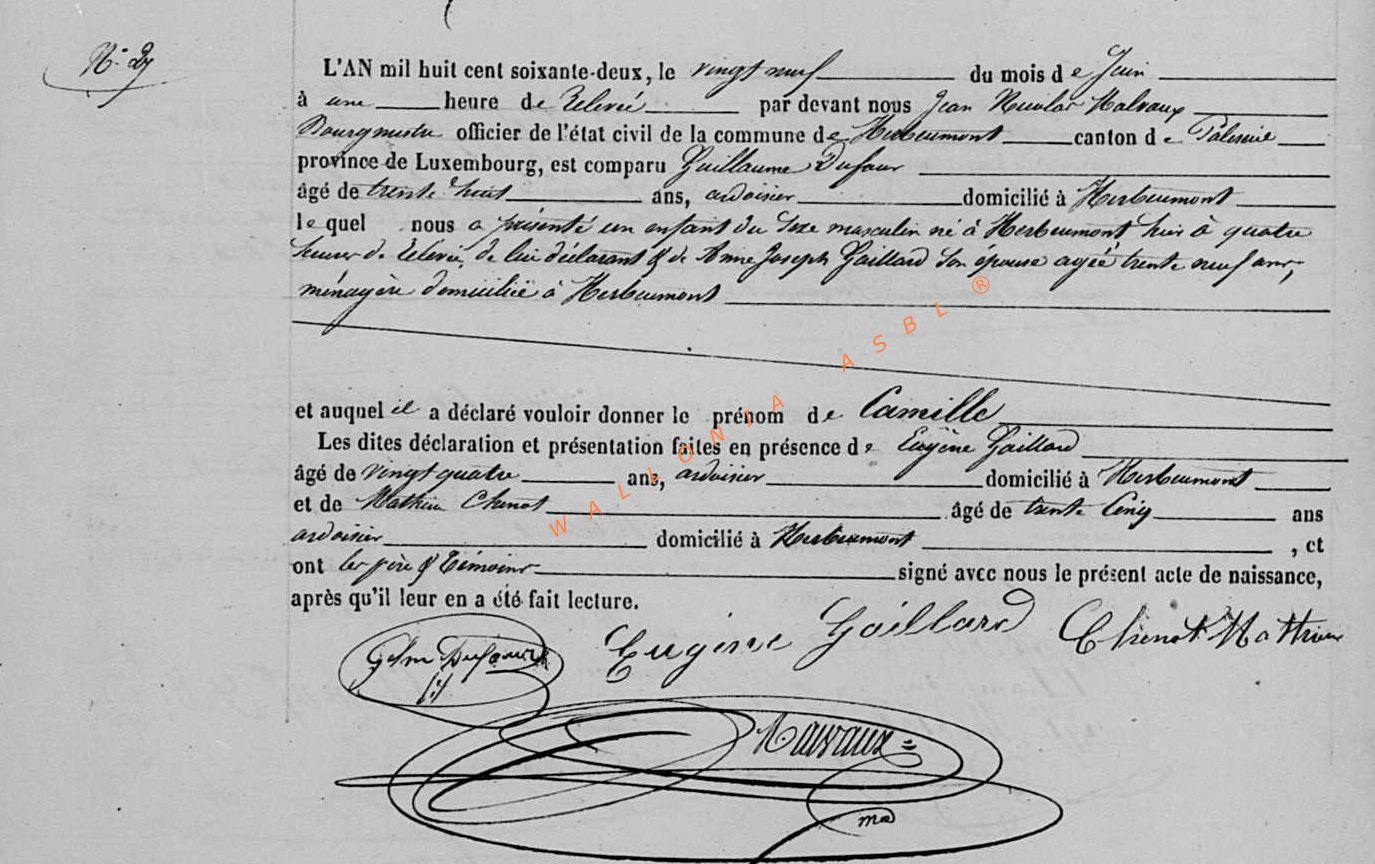 N° 29
L'AN mil huit cent soixante-deux, le vingt neuf du mois de Juin
à une heure de relevée par devant nous Jean Nicolas Malvaux
Bourgmestre officier de l'état civil de la commune de Herbeumont canton de Paliseul
province de Luxembourg, est comparu Guillaume Dufour
âgé de trente huit ans, ardoisier domicilié à Herbeumont
lequel nous a présenté un enfant du sexe masculin né à Herbeumont hier à quatre
heures de relevée, de lui déclarant & de Anne Joseph Gaillard son épouse agée trente neuf ans,
ménagère domiciliée à Herbeumont
et auquel il a déclaré vouloir donner le prénom de Camille
Les dites déclaration et présentation faites en présence de Eugène Gaillard
âgé de vingt quatre ans, ardoisier domicilié à Herbeumont
et de Mathieu Chenot âgé de trente cinq ans
ardoisier domicilié à Herbeumont, et
ont les père & témoins signé avec nous le présent acte de naissance,
après qu'il leur en a été fait lecture.
Eugène Gaillard Chenot Mathieu
Dufour
Malvaux
WALLONIA ASBL ®